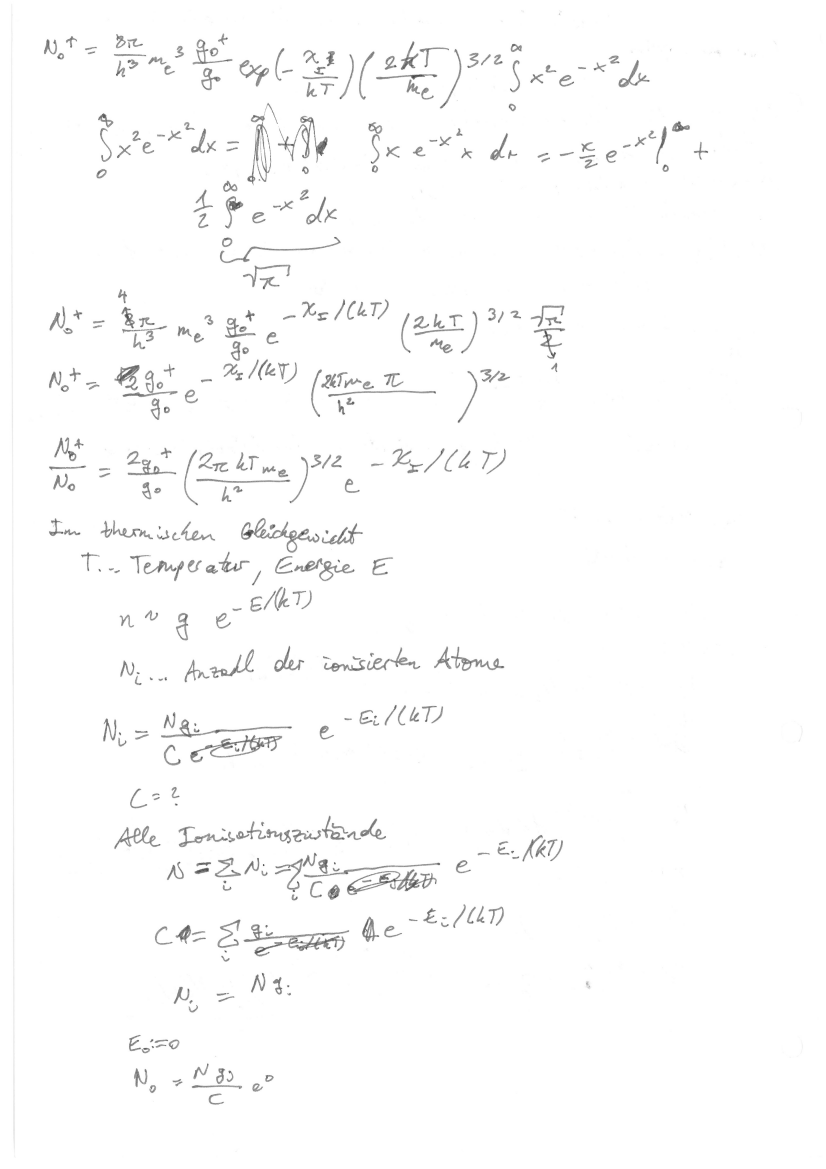 N₀⁺ = 8π/h³ mₑ³ g₀⁺/g₀ exp(-χ_I/kT) (2kT/mₑ)^3/2 ∫₀^∞ x² e^-x² dx
∫₀^∞ x² e^-x² dx = ∫₀^∞ x e^-x² x dx = -x/2 e^-x² |₀^∞ +
1/2 ∫₀^∞ e^-x² dx
√π
N₀⁺ = 4π/h³ mₑ³ g₀⁺/g₀ e^-χ_I/(kT) (2kT/mₑ)^3/2 √π/1
N₀⁺ = 2g₀⁺/g₀ e^-χ_I/(kT) (2kTmₑ π/h²)^3/2
N₀⁺/N₀ = 2g₀⁺/g₀ (2π kT mₑ/h²)^3/2 e^-χ_I/(kT)
Im thermischen Gleichgewicht
T... Temperatur, Energie E
n ~ g e^-E/(kT)
Nᵢ... Anzahl der ionisierten Atome
Nᵢ = Ngᵢ/C e^-Eᵢ/(kT)
C = ?
Alle Ionisationszustände
N = Σᵢ Nᵢ = Σᵢ Ngᵢ/C e^-Eᵢ/(kT)
C = Σᵢ gᵢ e^-Eᵢ/(kT)
Nᵢ = Ngᵢ
E₀:=0
N₀ = Ng₀/C e⁰